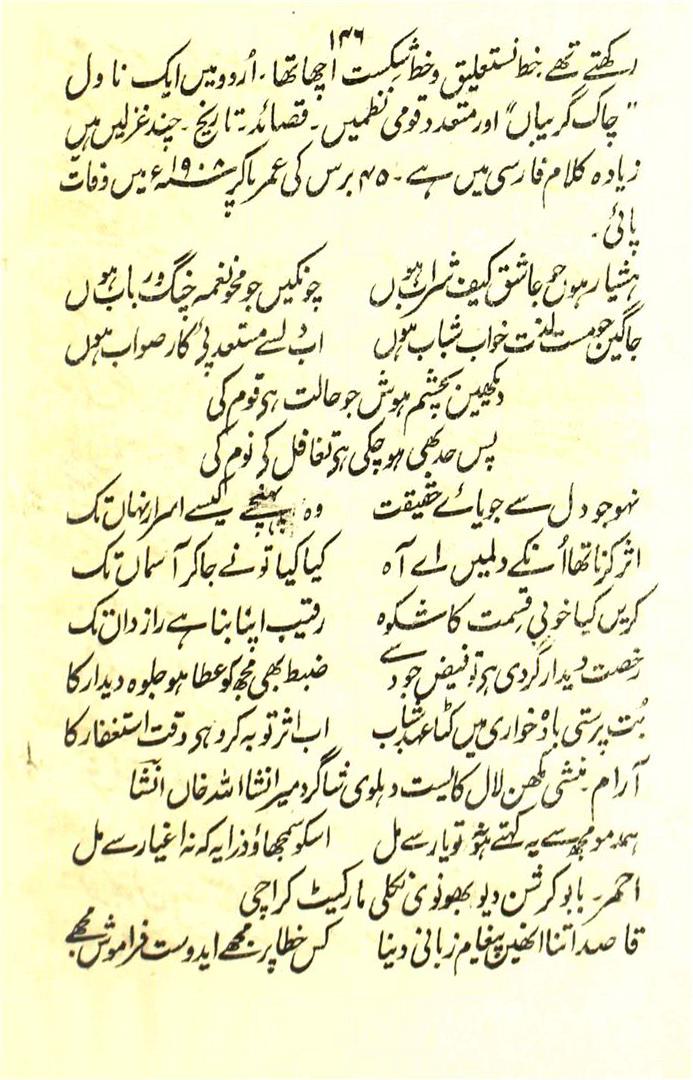 ۱۴۶
رکھتے تھے خط نستعلیق و خط شکست اچھا تھا۔ اُردو میں ایک ناول
"چاک گریباں" اور متعدد قومی نظمیں۔ قصائد۔ تاریخ۔ چند غزلیں ہیں
زیادہ کلام فارسی میں ہے۔ ۴۵ برس کی عمر پاکر ۱۹۰۸ء میں وفات
پائی۔
ہشیار ہوں جو عاشق کیف شراب ہوں چونکیں جو محو نغمہ چنگ و رباب ہوں
جاگیں جو مست لذت خواب شباب ہوں اب دل سے مستعد پئے کار صواب ہوں
دیکھیں بچشم ہوش جو حالت ہی قوم کی
بس حد بھی ہو چکی ہی تغافل کے نوم کی
نہو جو دل سے جویائے حقیقت وہ پہنچے کیسے اسرار نہاں تک
اثر کرنا تھا اُنکے دلمیں اے آہ کیا کیا تو نے جا کر آسماں تک
کریں کیا خوبیِ قسمت کا شکوہ رقیب اپنا بنا ہے راز داں تک
رخصت دیدار گر دی ہی تو فیض جود سے ضبط بھی مجھ کو عطا ہو جلوہ دیدار کا
بُت پرستی بادہ خواری میں کٹا عہد شباب اب اثر توبہ کرو ہی وقت استغفار کا
آرام۔ منشی مکھن لال کایست دہلوی شاگرد میر انشا اللہ خاں انشا
ہمدمو مجھ سے یہ کہتے ہو نہ تو یار سے مل اسکو سمجھاؤ ذرا یہ کہ نہ اغیار سے مل
احمر۔ بابو کرشن دیو بھونوی نکلی مارکیٹ کراچی
قاصد اتنا انھیں پیغام زبانی دینا کس خطا پر مجھے ایدوست فراموش مجھے